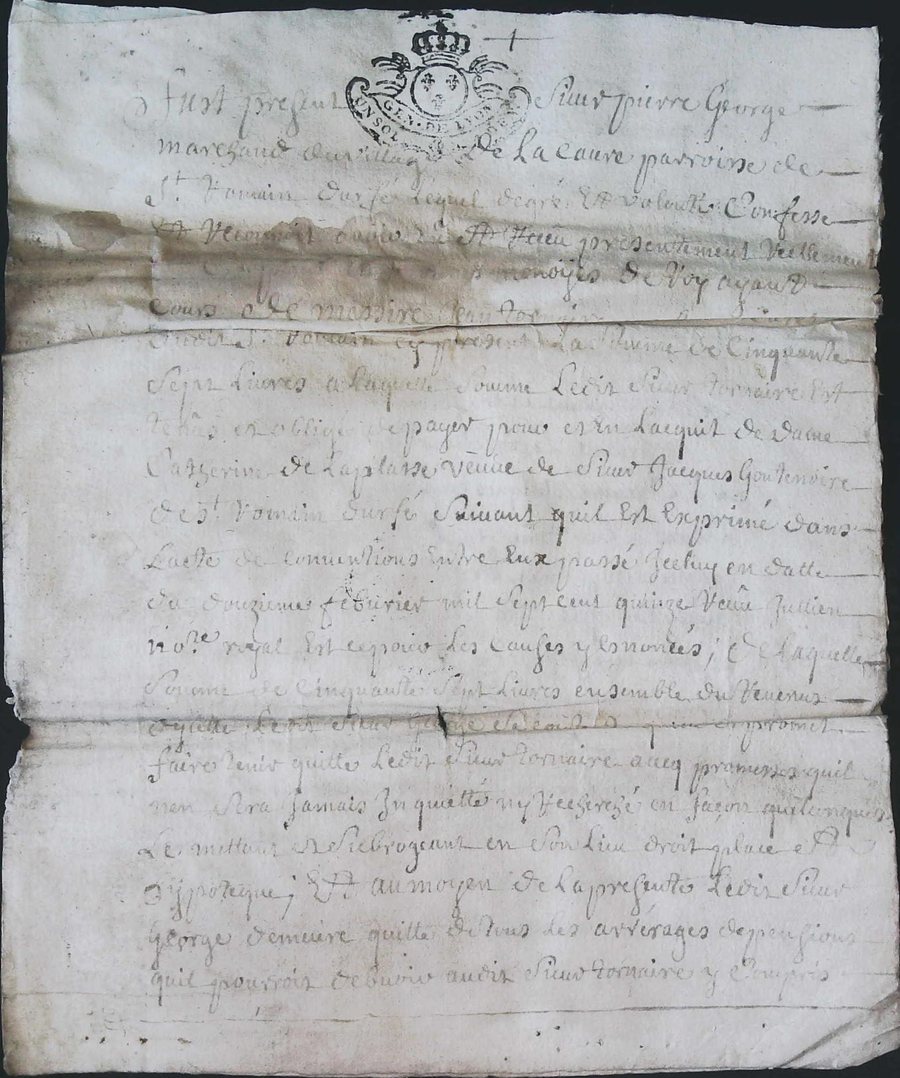 GEN. DE LYON
UN SOL
Fust present Sieur pierre George
marchand du village de La Caure parroisse de
St. Romain durfé Lequel degré Et volonté Confesse
Et Reconnoit avoir Eu Et Receu presentement Reellement
monoyes de Roy ayant
Cours de messire Jean tornaire
dudit St. Romain cy present La Somme de Cinquante
Sept Livres a laquelle Somme Ledit Sieur tornaire Est
tenus et obligé de payer pour et En Lacquit de dame
Catherine de Laplasse veuve de Sieur Jacques Goutenoire
de St. Romain durfé Suivant quil Est Exprimé dans
Lacte de Conventions Entre Eux passé Jceluy en datte
du douzieme febvrier mil Sept cent quinze Receu Jullien
nore. royal Est ce pour Les Causes y Enoncés; de Laquelle
Somme de Cinquante Sept Livres ensemble du Revenus
dycelle Ledit Sieur George promet
faire tenir quitte Ledit Sieur tornaire avecq promesse quil
nen Sera Jamais Jnquietté ny Recherché en façon quelconques
Le mettant et Subrogeant en Son Lieu droit place et
hypoteque; Et au moyen de La presente Ledit Sieur
George demeure quitte de tous Les arrérages de pensions
quil pourroit debvoir audit Sieur tornaire y Compris